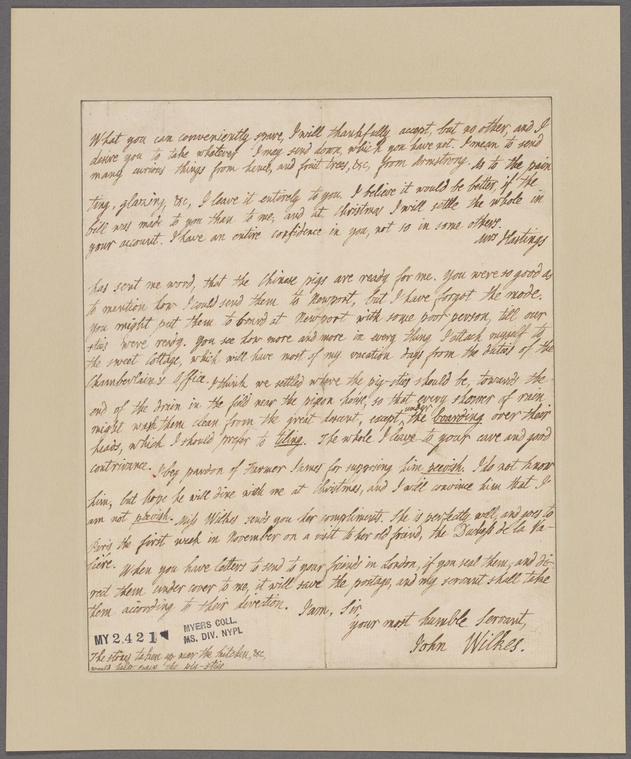 What you can conveniently spare, I will thankfully accept, but no other, and I
desire you to take whatever I may send down, which you have not. I mean to send
many curious things from hence, and fruit trees, &c, from Armstrong. As to the pain
ting, glazing, &c, I leave it entirely to you. I believe it would be better, if the
bill was made to you than to me, and at Christmas I will settle the whole in
your account. I have an entire confidence in you, not so in some others.
Mrs Hastings
has sent me word, that the Chinese pigs are ready for me. You were so good as
to mention how I could send them to Newport, but I have forgot the mode.
You might put them to board at Newport with some poor person, till our
sties were ready. You see how more and more in every thing I attach myself to
the sweet cottage, which will have most of my vacation days from the duties of the
Chamberlain's Office. I think we settled where the pig-sties should be, towards the
end of the drain in the field near the pigeon house, so that every shower of rain
might wash them clean from the great descent, except under the boarding over their
heads, which I should prefer to tiling. The whole I leave to your care and good
contrivance. I beg pardon of Farmer James for supposing him peevish. I do not know
him, but hope he will dine with me at Christmas, and I will convince him that I
am not peevish. Miss Wilkes sends you her compliments. She is perfectly well, and goes to
Paris the first week in November on a visit to her old friend, the Dutchess de la Va-
liere. When you have letters to send to your friends in London, if you seal them, and di-
rect them under cover to me, it will save the postage, and my servant shall take
them according to their direction. I am, Sir,
your most humble Servant,
John Wilkes.
MY 2421
MYERS COLL.
MS. DIV. NYPL
The stones taken up near the kitchen, &c,
would help pave the pig-sties